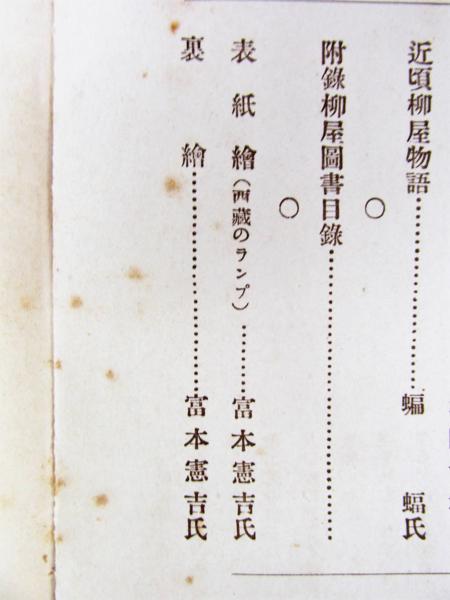 近頃柳屋物語……………………蝙蝠氏
○
附錄柳屋圖書目錄……………………………
○
表紙繪(西藏のランプ)………富本憲吉氏
裏繪……………………富本憲吉氏